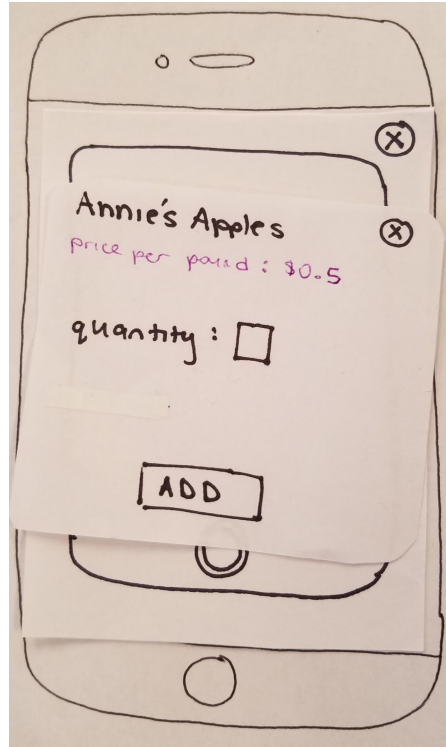 X
Annie's Apples
X
price per pound : $0.5
quantity :
ADD